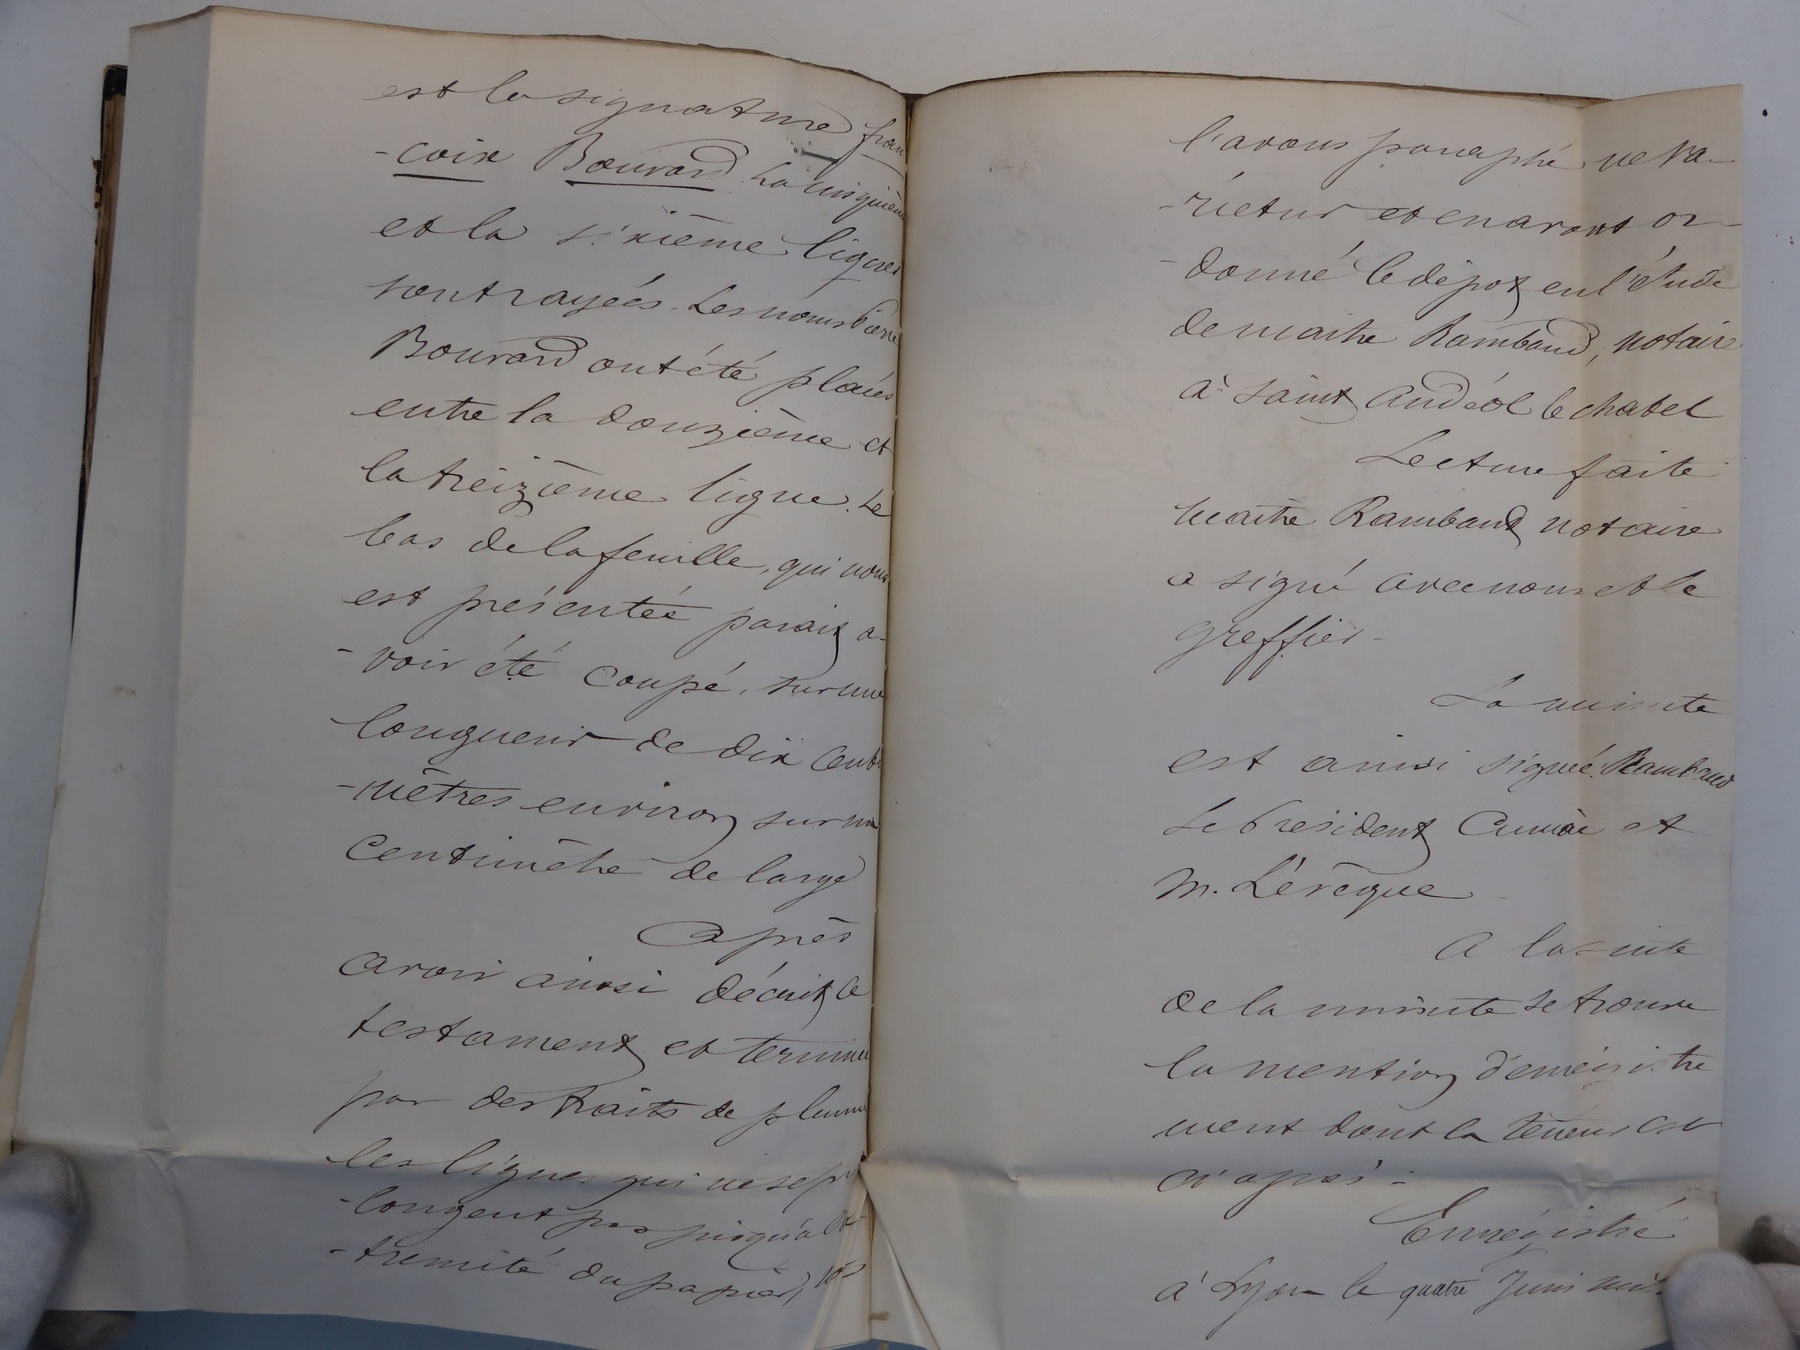 est la signature fran
-çoix Bouvard. La cinquième
et la sixième lignes
sont rayées. Les noms Pierre
Bouvard ont été placés
entre la douzième et
la treizième ligne. Le
bas de la feuille, qui nous
est présentée parait a-
-voir été coupé, sur une
longueur de dix centi
-mètres environ sur un
centimètre de large
Après
avoir ainsi décrit le
testament et terminé
par des traits de plume
les lignes qui ne se pro
-longent pas jusqu'à l'ex-
-tremité du papier, nous
l'avons paraphé ne va-
-rietur et en avons or-
-donné le dépot en l'étude
de maitre Rambaud, notaire
à Saint Andéol le chatel
Lecture faite
maitre Rambaud notaire
a signé avec nous et le
greffier -
La minute
est ainsi signée: Rambaud
Le Président et
M. Lévêque
A la suite
de la minute se trouve
la mention d'enregistre
ment dont la teneur est
ci après :
Enregistré
à Lyon le quatre Juin